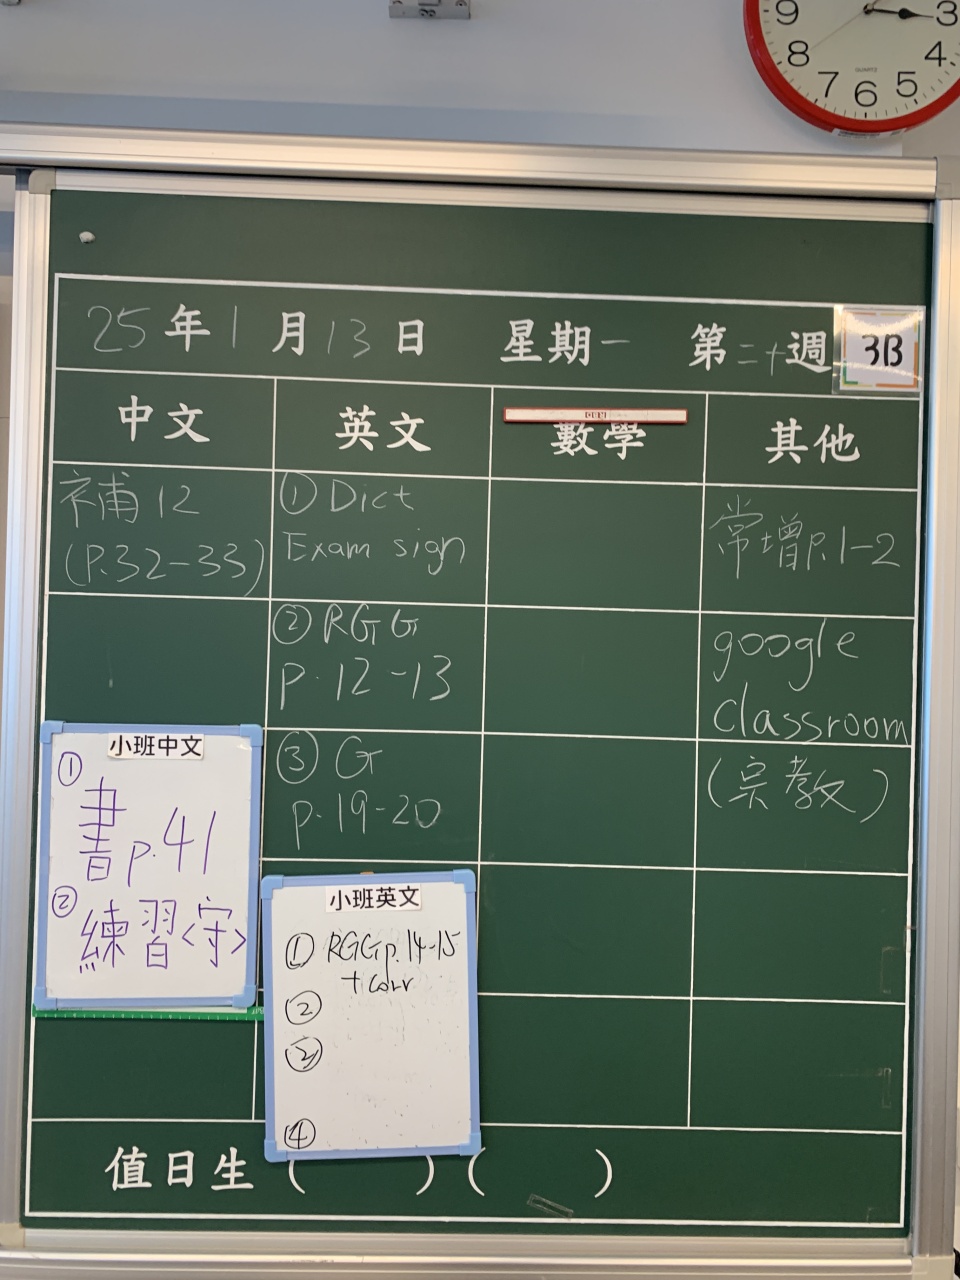 9
3
8
4
7
6
5
QUARTZ
25年1月13日 星期一 第二十週 3B
中文 英文 數學 其他
補12
(P.32-33)
① Dict
Exam sign
常增P.1-2
② RGG
p.12-13
google
classroom
(宗教)
③ G
p.19-20
小班中文
①
書p.41
②
練習<守>
小班英文
① RGG p.14-15
+ corr
②
③
④
值日生( )( )